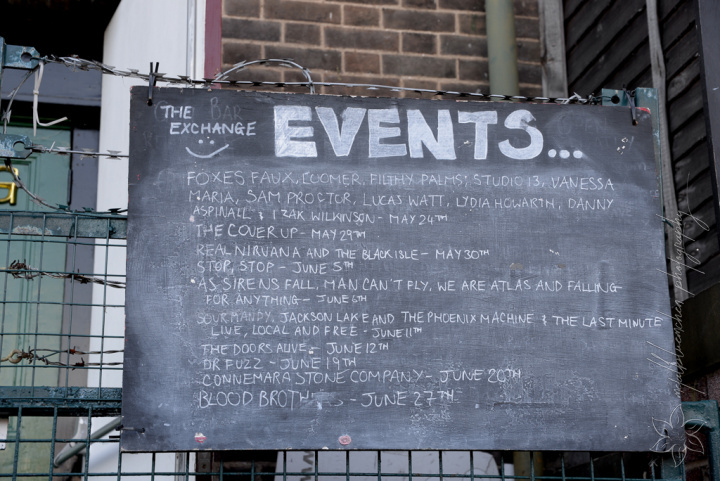 THE BAR
EXCHANGE
EVENTS...
FOXES FAUX, COOMER, FILTHY PALMS, STUDIO 13, VANESSA
MARIA, SAM PROCTOR, LUCAS WATT, LYDIA HOWARTH, DANNY
ASPINALL & IZAK WILKINSON - MAY 24TH
THE COVER UP - MAY 29TH
REAL NIRVANA AND THE BLACK ISLE - MAY 30TH
STOP, STOP - JUNE 5TH
AS SIRENS FALL, MAN CAN'T FLY, WE ARE ATLAS AND FALLING
FOR ANYTHING - JUNE 6TH
SOUR MANDY, JACKSON LAKE AND THE PHOENIX MACHINE & THE LAST MINUTE
LIVE, LOCAL AND FREE - JUNE 11TH
THE DOORS ALIVE - JUNE 12TH
DR FUZZ - JUNE 19TH
CONNEMARA STONE COMPANY - JUNE 20TH
BLOOD - JUNE 27TH